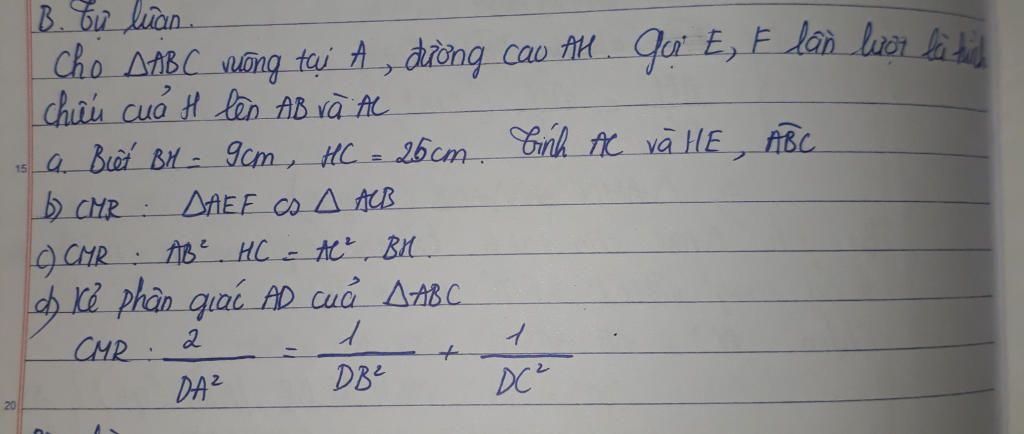 B. Tự luận.
Cho △ABC vuông tại A, đường cao AH. Gọi E, F lần lượt là hình
chiếu của H lên AB và AC
15 a. Biết BH = 9cm, HC = 25cm. Tính AC và HE, ABC
b) CMR: △AEF ∽ △ACB
c) CMR: AB². HC = AC². BH
d) Kẻ phân giác AD của △ABC
CMR: 2/DA² = 1/DB² + 1/DC²
20